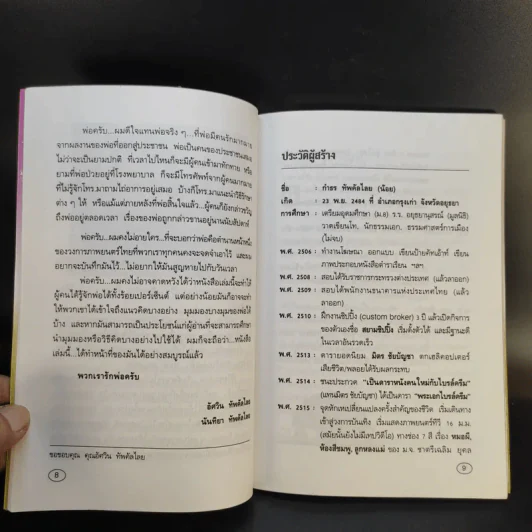 พ่อครับ...ผมดีใจแทนพ่อจริง ๆ...ที่พ่อมีคนรักมากมาย
จากผลงานของพ่อที่ออกสู่ประชาชน พ่อเป็นคนของประชาชนเสมอ
ไม่ว่าจะเป็นยามปกติ ที่เวลาไปไหนก็จะมีผู้คนเข้ามาทักทาย หรือ
ยามที่พ่อป่วยอยู่ที่โรงพยาบาล ก็จะมีโทรศัพท์จากผู้คนมากมาย
ที่ไม่รู้จักโทร.มาถามไถ่อาการอยู่เสมอ บ้างก็โทร.มาแนะนำวิธีรักษา
ให้หาย หรือแม้แต่ภายหลังที่พ่อสิ้นใจแล้ว...ผู้คนก็ยังกล่าวขวัญ
ถึงพ่ออยู่ตลอดเวลา เรื่องของพ่อถูกกล่าวขานอยู่นานนับสัปดาห์
พ่อครับ...ผมคงไม่อายใคร...ที่จะบอกว่าพ่อคือตำนานหน้าหนึ่ง
ของวงการภาพยนตร์ไทยที่พวกเราทุกคนคงจะจดจำเอาไว้ และผม
อยากจะบันทึกมันไว้...ไม่อยากให้มันสูญหายไปกับวันเวลา
พ่อครับ...ผมคงไม่อาจคาดหวังได้ว่าหนังสือเล่มนี้จะทำให้
ผู้คนได้รู้จักพ่อได้ทั้งร้อยเปอร์เซ็นต์ แต่อย่างน้อยมันก็อาจจะทำ
ให้พวกเขาได้เข้าใจถึงแนวคิดบางอย่าง มุมมองบางมุมของพ่อได้
บ้าง และหากมันสามารถเป็นประโยชน์แก่ผู้อ่านที่จะสามารถศึกษา
นำมุมมองหรือวิธีคิดบางอย่างไปใช้ได้ ผมก็จะถือว่า...หนังสือ
เล่มนี้...ได้ทำหน้าที่ของมันได้อย่างสมบูรณ์แล้ว
พวกเรารักพ่อครับ
อัศวิน ทัพคัลไลย
นันทิยา ทัพคัลไลย
ขอขอบคุณ คุณอัศวิน ทัพคัลไลย
8
ประวัติผู้สร้าง
ชื่อ : กำธร ทัพคัลไลย (น้อย)
เกิด : 23 พ.ย. 2484 ที่ อำเภอกรุงเก่า จังหวัดอยุธยา
การศึกษา : เตรียมอุดมศึกษา (ม.8) ร.ร. อยุธยานุสรณ์ (มูลนิธิ)
วาดเขียนโท, นักธรรมเอก, ธรรมศาสตร์การเมือง
(ไม่จบ)
พ.ศ. 2506 : ทำงานโฆษณา ออกแบบ เขียนป้ายคัทเอ้าท์ เขียน
ภาพประกอบหนังสือตำราเรียน ฯลฯ
พ.ศ. 2508 : สอบได้รับราชการกระทรวงต่างประเทศ (แล้วลาออก)
พ.ศ. 2509 : สอบได้พนักงานธนาคารแห่งประเทศไทย (แล้ว
ลาออก)
พ.ศ. 2510 : ฝึกงานชิปปิ้ง (custom broker) 3 ปี แล้วเปิดกิจการ
ของตัวเองชื่อ สยามชิปปิ้ง เริ่มตั้งตัวได้ และมีฐานะดี
ในเวลาอันรวดเร็ว
พ.ศ. 2513 : ดารายอดนิยม มิตร ชัยบัญชา ตกเฮลิคอปเตอร์
เสียชีวิต/พลอยได้รับผลกระทบ
พ.ศ. 2514 : ชนะประกวด "เป็นดาราหนังคนใหม่กับไบรล์ครีม"
(แทนมิตร ชัยบัญชา) ได้เป็นดารา "พระเอกไบรล์ครีม"
พ.ศ. 2515 : จุดหักเหเปลี่ยนแปลงครั้งสำคัญของชีวิต เริ่มเดินทาง
เข้าสู่วงการบันเทิง เริ่มแสดงภาพยนตร์ทีวี 16 ม.ม.
(สมัยนั้นยังไม่มีเทปวีดีโอ) ทางช่อง 7 สี เรื่อง หมอผี,
ห้องสีชมพู, ลูกหลงแม่ ของ ม.จ. ชาตรีเฉลิม ยุคล
9